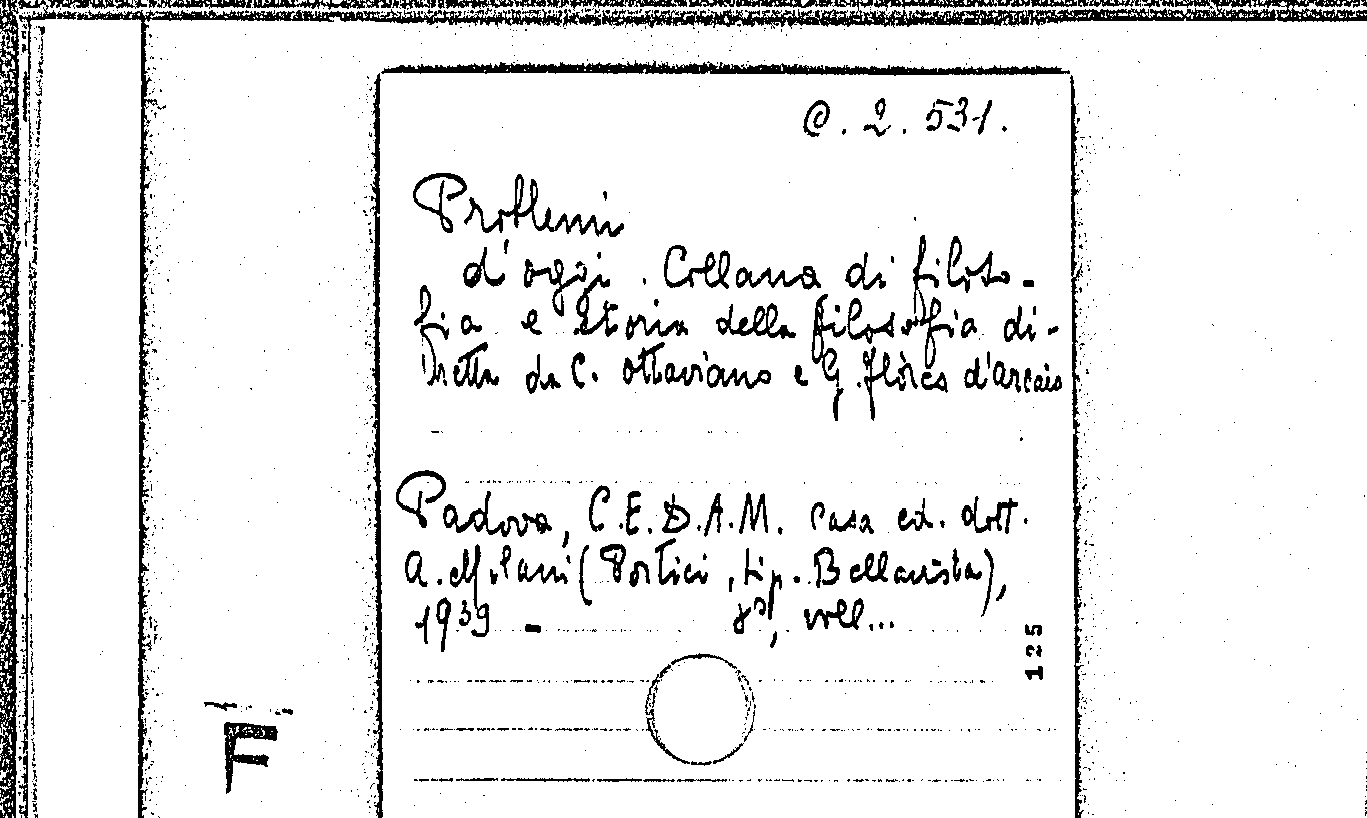 C. 2. 531.
Problemi
d'oggi. Collana di filoso-
fia e storia della filosofia di-
retta da C. Ottaviano e G. Flores d'Arcais
Padova, C.E.D.A.M. Casa ed. dott.
A. Milani (Portici, tip. Bellavista),
1939 - 8º, voll...
125
F